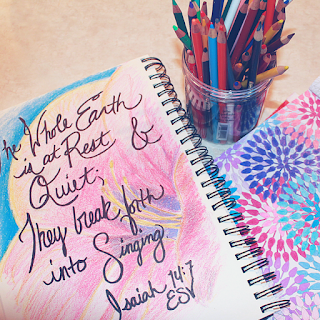 The Whole Earth
is at Rest &
Quiet;
They break forth
into Singing
Isaiah 14:7
ESV